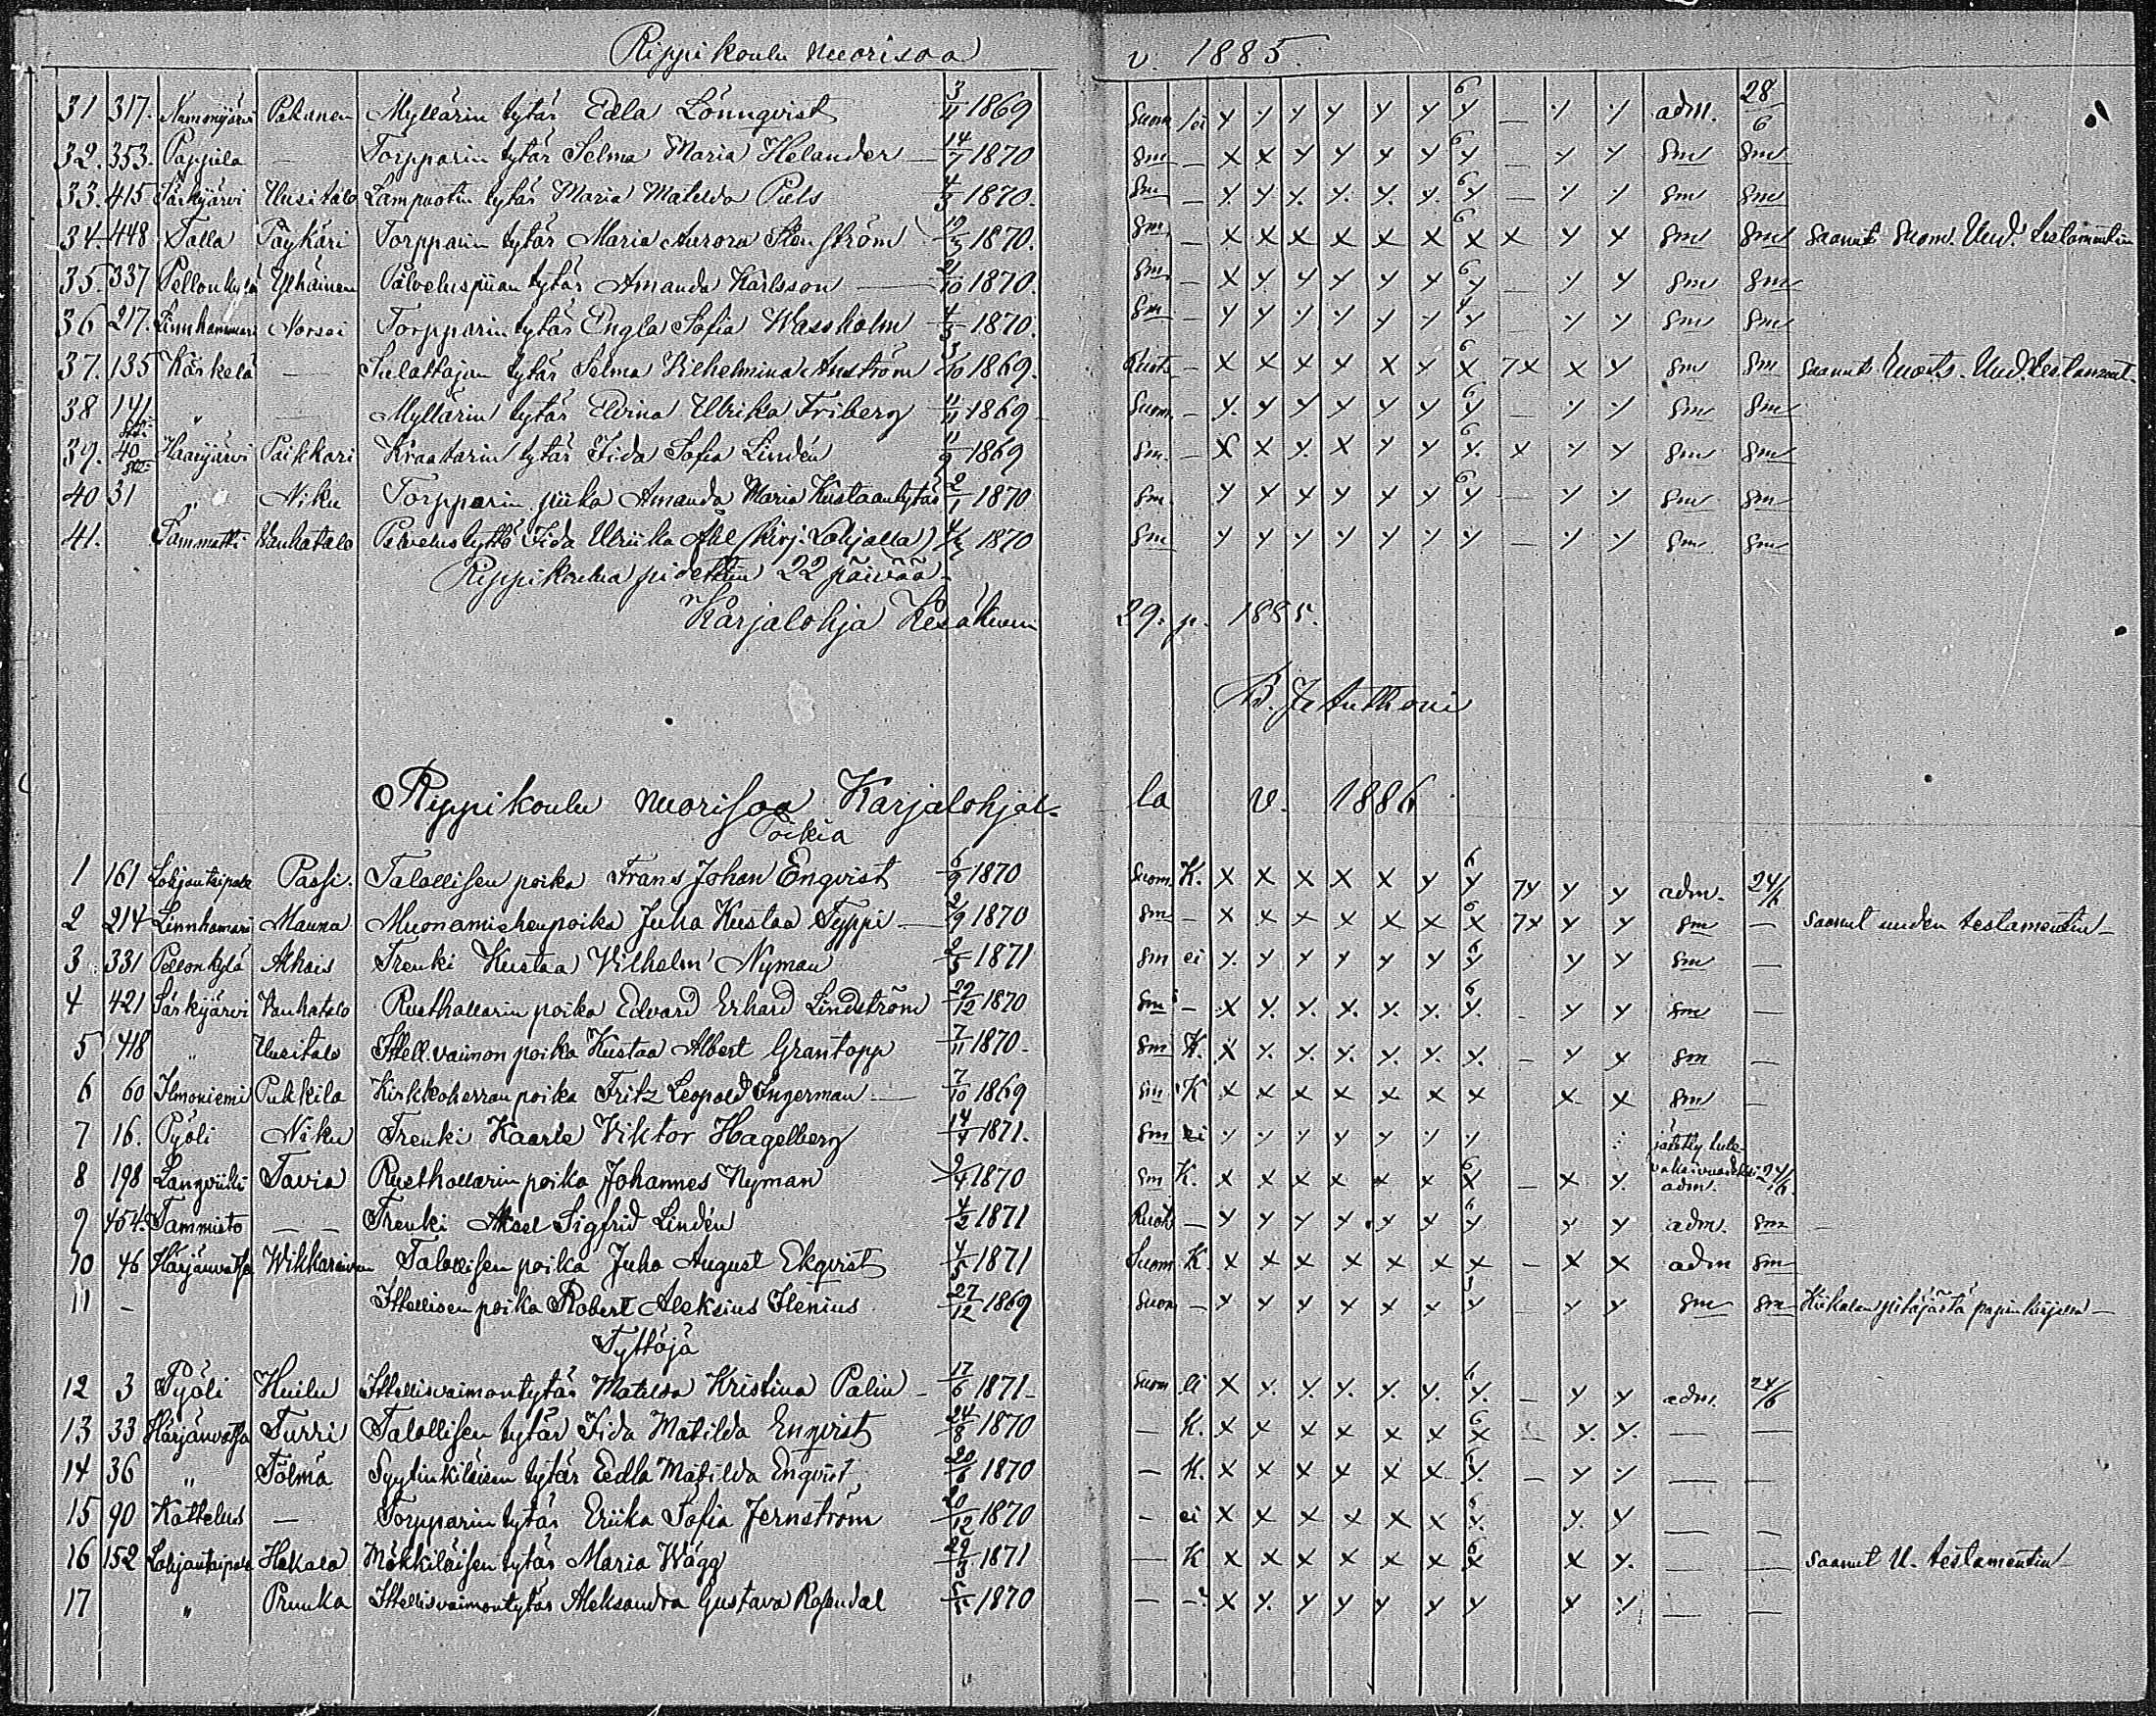 Rippikoulu nuorisoa v. 1885.
31 317. Nummijärvi Pekanen Myllärin tytär Edla Lönnqvist 3/4 1869 Suom ei y y y y y y 6 y — y y adm. 28/6
32. 353. Pappila — Torpparin tytär Selma Maria Helander — 14/7 1870 Sm — x x y y y y 6 y — y y Sm Sm
33. 415 Särkijärvi Uusitalo Lampuotin tytär Maria Matilda Pihls 4/3 1870. Sm — y. y. y. y. y. y. 6 y — y y Sm Sm
34. 448 Talla Päykäri Torpparin tytär Maria Aurora Stenström 19/3 1870. Sm — x x x x x x 6 x x x x Sm Sm Saanut Suom. Uud. Testamentin
35 337 Pellonkylä Ylhäinen Palveluspiian tytär Amanda Karlsson — 21/10 1870. Sm — x y y y y y 6 y — y y Sm Sm
36 217. Linnhammari Norsei Torpparin tytär Engla Sofia Wassholm 4/3 1870. Sm — y y y y y y y — y y Sm Sm
37. 135 Kärkelä — Sulattajan tytär Selma Vilhelmina Anström 3/10 1869. Ruots — x x x x x y 6 x 7x x y Sm Sm Saanut Ruots. Uud. Testament.
38 141 " — Myllärin tytär Edvina Ulrika Friberg 11/11 1869 Suom — y. y y y y y 6 y — y y Sm Sm
39. 40 Haarijärvi Paikkari Kraatarin tytär Iida Sofia Lindén 11/9 1869 Sm. — x x y. x y y 6 y. x y y Sm Sm
40 31 " Niku Torpparin piika Amanda Maria Kustaantytär 2/1 1870 Sm. y y y y y y 6 y — y y Sm Sm
41. Sammatti Vanhatalo Palvelustyttö Iida Ulriika (kirj. Lohjalla) 1870 Sm y y y y y y y — y y Sm Sm
Rippikoulua pidettiin 22 päivää.
Karjalohja Kesäkuun 29. p. 1885.
Anthoni
Rippikoulu nuorisoa Karjalohjalla v. 1886
Poikia
1 161 Lohjantaipale Passi. Talollisen poika Frans Johan Enqvist 6/9 1870 Suom. K. x x x x x y 6 y 7y y y adm. 24/6
2 214 Linnhamari Mauna Muonamiehenpoika Juha Kustaa Typpi — 2/9 1870 Sm — x x x x x x 6 x 7x y y Sm — Saanut uuden testamentin —
3 331 Pellonkylä Alhais Trenki Kustaa Vilhelm Nyman 2/3 1871 Sm ei y. y y y y y 6 y y y Sm —
4 421 Särkijärvi Vanhatalo Rusthollarin poika Edvard Erhard Lindström 29/12 1870 Sm — x y. y. y. y. y. 6 y. — y y Sm —
5 418 " Uusitalo Itsell. vaimon poika Kustaa Albert Grantopp 7/11 1870 Sm K. x y. y. y. y. y. y. — y x Sm —
6 60 Ilmoniemi Pukkila Kirkkoherran poika Fritz Leopold Ingerman — 7/10 1869 Sm K x x x x x x x x x Sm —
7 16. Pyöli Niku Trenki Kaarle Viktor Hagelberg 14/4 1871. Sm ei y y y y y y y jätetty tulevaksi vuodeksi
8 198 Långviiki Tavia Rusthollarin poika Johannes Nyman 9/4 1870 Sm K. x x x x x x 6 x — x y. adm. 24/6.
9 454 Tammisto — — Trenki Aksel Sigfrid Lindén 4/2 1871 Ruots — y y y y y y 6 y y y adm. Sm —
10 46 Härjänvatsa Wikkarainen Talollisen poika Juha August Ekqvist 4/5 1871 Suom K. x x x x x x x — x x adm Sm
11 — Itsellisen poika Robert Aleksius Ilenius 27/12 1869 Suom — y y y y x y y — y y Sm Sm Kiikalan pitäjästä papinkirjalla —
Tyttöjä
12 3 Pyöli Huilu Itsellisvaimontytär Matilda Kristina Palin — 17/6 1871 — Suom ei x y. y. y. y. y. 6 y. — y y adm. 24/6
13 33 Härjänvatsa Turri Talollisen tytär Iida Matilda Enqvist 24/8 1870 — K. x x x x x x 6 x — y. y. — —
14 36 " Tölmä Syytinkiläisen tytär Eedla Matilda Enqvist 20/6 1870 — K. x x x x x x 6 y. — y y — —
15 90 Kattelus — Torpparin tytär Eriika Sofia Jernström 20/12 1870 — ei x x x x x x 6 y. y. y — —
16 152 Lohjantaipale Hakala Mökkiläisen tytär Maria Wägg 29/3 1871 — K x x x x x x 6 x x y. — — Saanut U. testamentin
17 " Pruuka Itsellisvaimontytär Aleksandra Gustava Rosendal 5/5 1870 — — x y. y y y y y y y — —